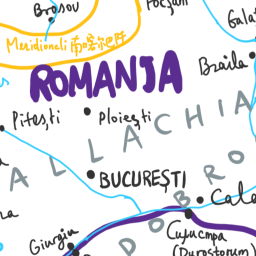 Brosov
Focșani
Galați
Meridionali 南喀尔巴阡
ROMANIA
Brăila
Pitești
Ploiești
ALLACHIA
BUCUREȘTI
DOBRO
Cala
Силистра
(Durostorum)
Giurgiu